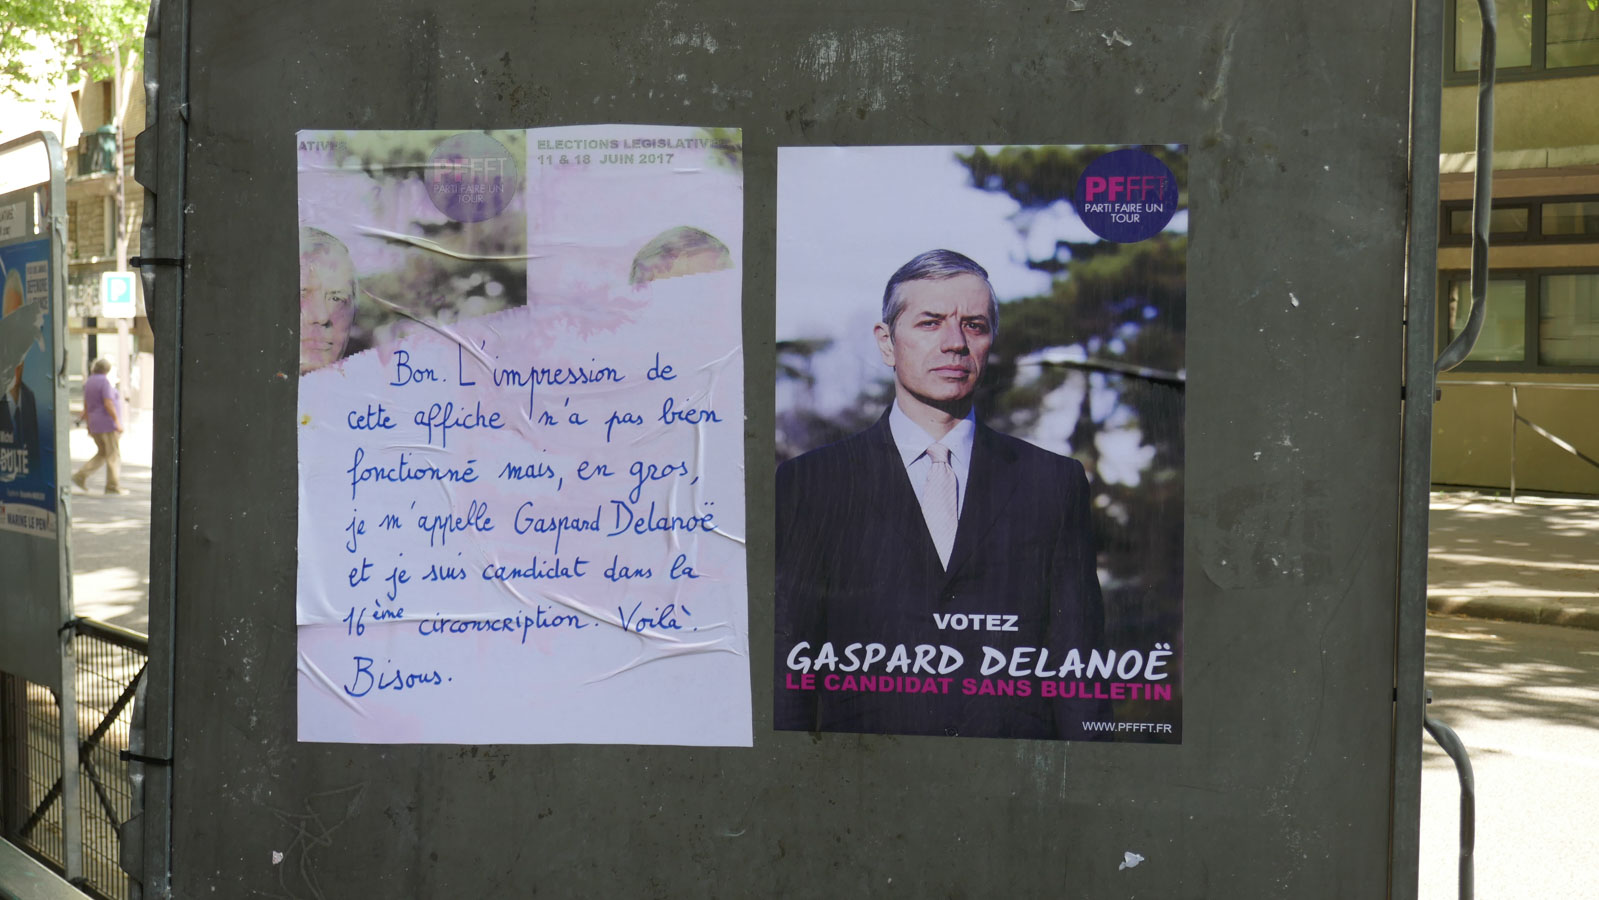 ATIVES
PFFFT
PARTI FAIRE UN
TOUR
ELECTIONS LEGISLATIVE
11 & 18 JUIN 2017
Bon. L'impression de
cette affiche n'a pas bien
fonctionné mais, en gros,
je m'appelle Gaspard Delanoë
et je suis candidat dans la
16ème circonscription. Voilà.
Bisous.
PFFFT
PARTI FAIRE UN
TOUR
VOTEZ
GASPARD DELANOË
LE CANDIDAT SANS BULLETIN
WWW.PFFFT.FR
P
MARINE LE PEN